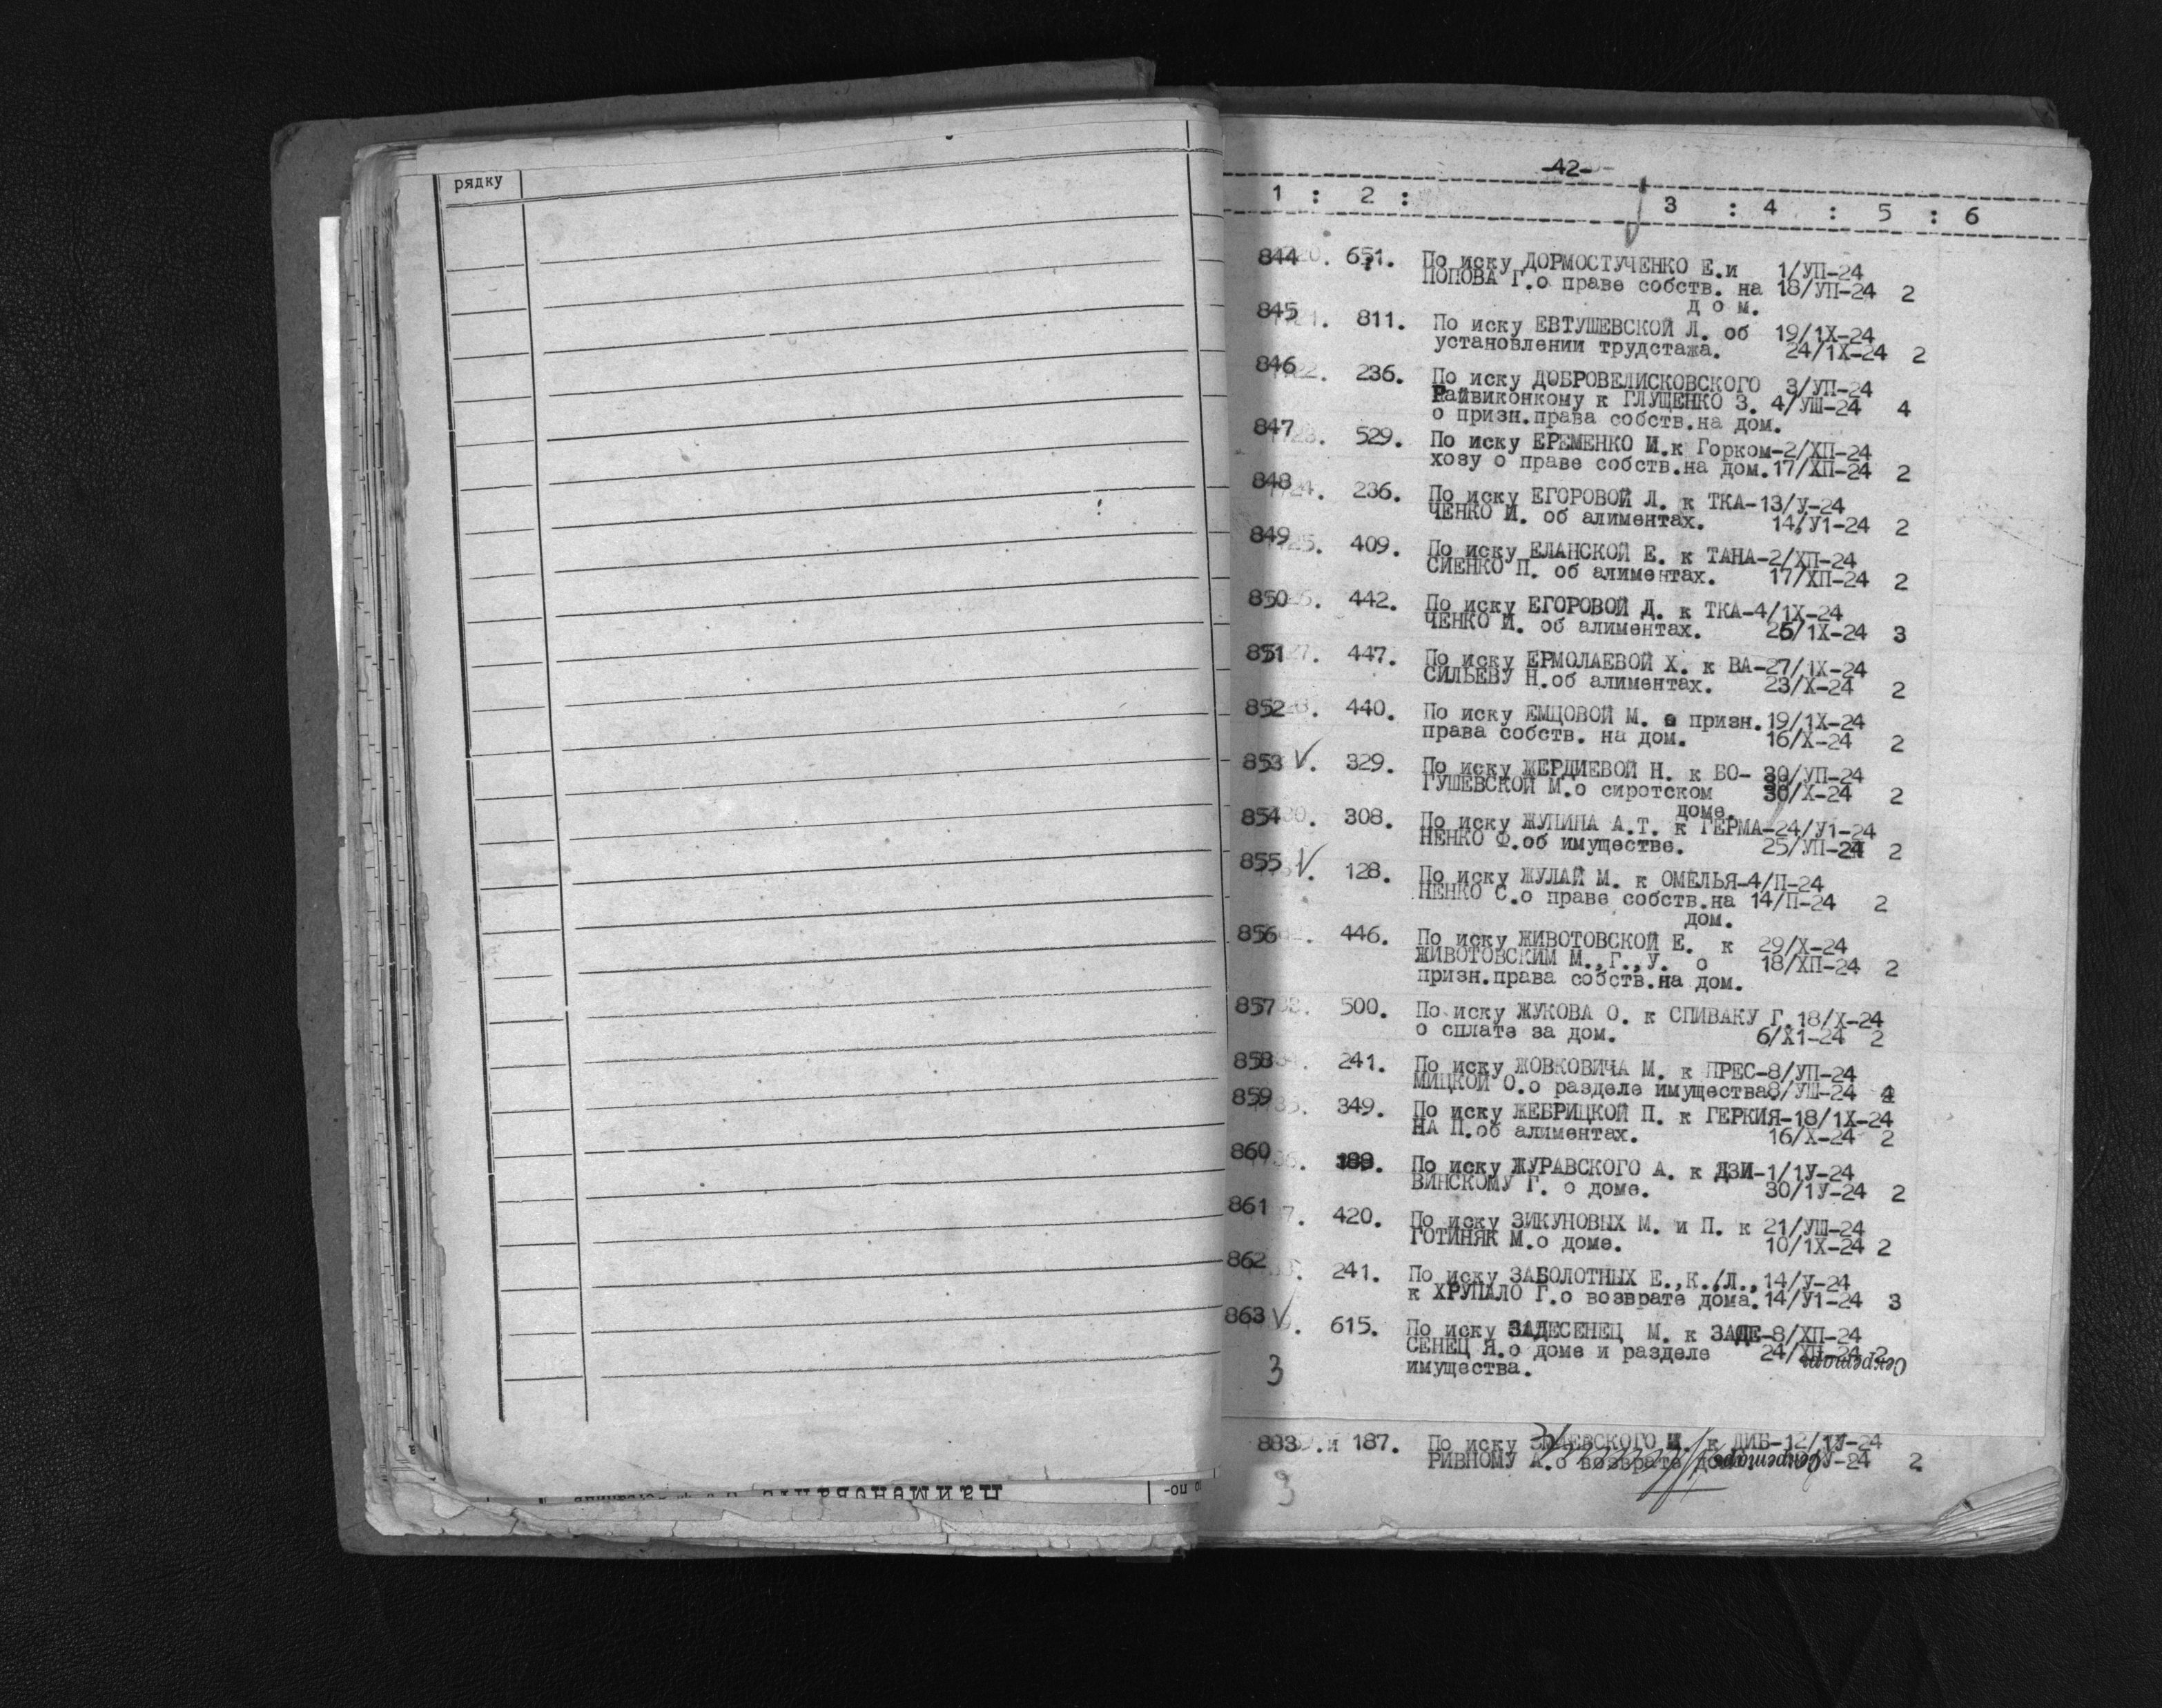 рядку
-42-
1 : 2 : 3 : 4 : 5 : 6
844 . 651. По иску ДОРМОСТУЧЕНКО Е.и 1/УП-24
ПОПОВА Г.о праве собств. на 18/УП-24 2
д о м.
845 . 811. По иску ЕВТУШЕВСКОЙ Л. об 19/1Х-24
установлении трудстажа. 24/1Х-24 2
846 . 236. По иску ДОБРОВЕЛИСКОВСКОГО 3/УП-24
Райвиконкому к ГЛУЩЕНКО З. 4/УШ-24 4
о призн.права собств.на дом.
847 . 529. По иску ЕРЕМЕНКО И.к Горком-2/ХП-24
хозу о праве собств.на дом.17/ХП-24 2
848 . 236. По иску ЕГОРОВОЙ Л. к ТКА-13/У-24
ЧЕНКО И. об алиментах. 14/У1-24 2
849 . 409. По иску ЕЛАНСКОЙ Е. к ТАНА-2/ХП-24
СИЕНКО П. об алиментах. 17/ХП-24 2
850 . 442. По иску ЕГОРОВОЙ Д. к ТКА-4/1Х-24
ЧЕНКО И. об алиментах. 25/1Х-24 3
851 . 447. По иску ЕРМОЛАЕВОЙ Х. к ВА-27/1Х-24
СИЛЬЕВУ Н.об алиментах. 23/Х-24 2
852 . 440. По иску ЕМЦОВОЙ М. о призн.19/1Х-24
права собств. на дом. 16/Х-24 2
853 V. 329. По иску ЖЕРДИЕВОЙ Н. к БО- 30/УП-24
ГУШЕВСКОЙ М.о сиротском 30/Х-24 2
доме.
854 . 308. По иску ЖУПИНА А.Т. к ГЕРМА-24/У1-24
НЕНКО Ф.об имуществе. 25/УП-24 2
855 V. 128. По иску ЖУЛАЙ М. к ОМЕЛЬЯ-4/П-24
НЕНКО С.о праве собств.на 14/П-24 2
дом.
856 . 446. По иску ЖИВОТОВСКОЙ Е. к 29/Х-24
ЖИВОТОВСКИМ М.,Г.,У. о 18/ХП-24 2
призн.права собств.на дом.
857 . 500. По иску ЖУКОВА О. к СПИВАКУ Г.18/Х-24
о сплате за дом. 6/Х1-24 2
858 . 241. По иску ЖОВКОВИЧА М. к ПРЕС-8/УП-24
МИЦКОЙ О.о разделе имущества8/УШ-24 4
859 . 349. По иску ЖЕБРИЦКОЙ П. к ГЕРКИЯ-18/1Х-24
НА П.об алиментах. 16/Х-24 2
860 . По иску ЖУРАВСКОГО А. к ДЗИ-1/1У-24
ВИНСКОМУ Г. о доме. 30/1У-24 2
861 . 420. По иску ЗИКУНОВЫХ М. и П. к 21/УШ-24
ГОТИНЯК М.о доме. 10/1Х-24 2
862 . 241. По иску ЗАБОЛОТНЫХ Е.,К.,Л., 14/У-24
к ХРУПАЛО Г.о возврате дома.14/У1-24 3
863 V. 615. По иску ЗАДЕСЕНЕЦ М. к ЗАДЕ-8/ХП-24
СЕНЕЦ Я.о доме и разделе 24/ХП-24 2
имущества.
Секретарь
3
883 . и 187. По иску к ДИБ-12/1У-24
РИВНОМУ о возврате У-24 2
Секретарь
3
Наименование